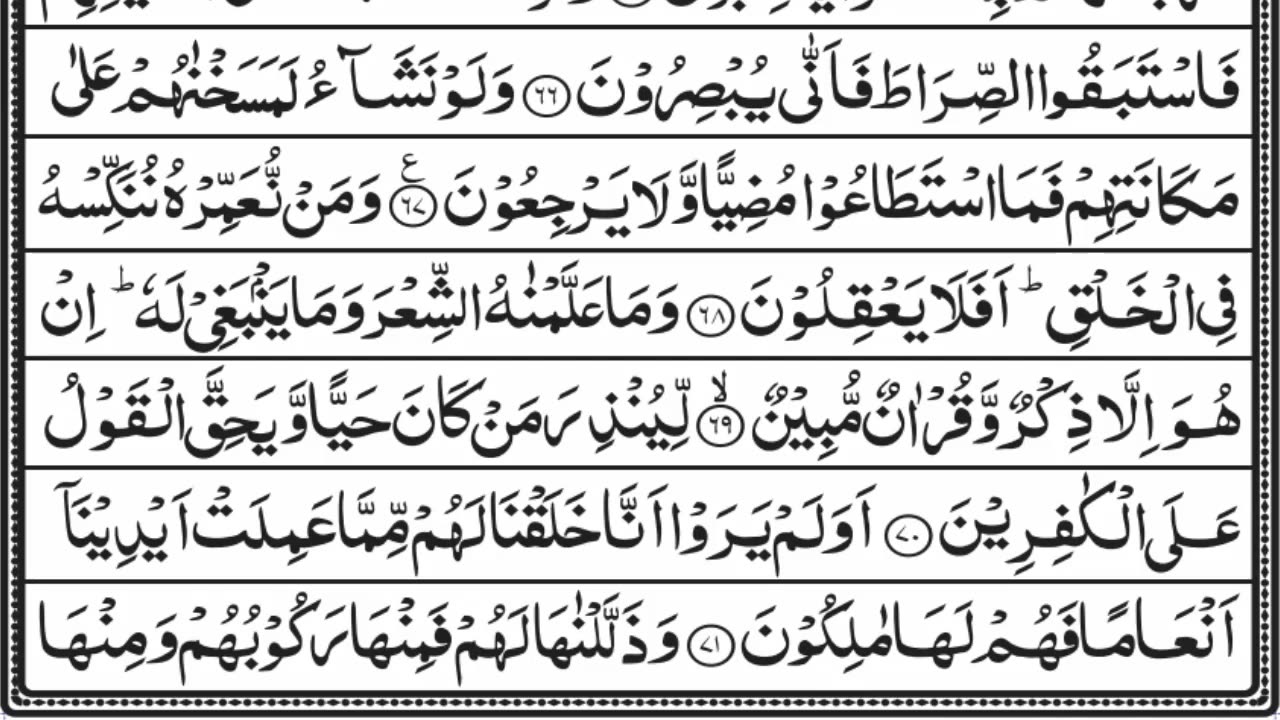 فَاسْتَبَقُوا الصِّرَاطَ فَاَنّٰى يُبْصِرُوْنَ ﴿٦٦﴾ وَلَوْ نَشَآءُ لَمَسَخْنٰهُمْ عَلٰى
مَكَانَتِهِمْ فَمَا اسْتَطَاعُوْا مُضِيًّا وَّلَا يَرْجِعُوْنَ ﴿٦٧﴾ ع وَمَنْ نُّعَمِّرْهُ نُنَكِّسْهُ
فِى الْخَلْقِ ؕ اَفَلَا يَعْقِلُوْنَ ﴿٦٨﴾ وَمَا عَلَّمْنٰهُ الشِّعْرَ وَمَا يَنْۢبَغِىْ لَهٗ ؕ اِنْ
هُوَ اِلَّا ذِكْرٌ وَّقُرْاٰنٌ مُّبِيْنٌ ﴿٦٩﴾ ۙ لِّيُنْذِرَ مَنْ كَانَ حَيًّا وَّيَحِقَّ الْقَوْلُ
عَلَى الْكٰفِرِيْنَ ﴿٧٠﴾ اَوَلَمْ يَرَوْا اَنَّا خَلَقْنَا لَهُمْ مِّمَّا عَمِلَتْ اَيْدِيْنَاۤ
اَنْعَامًا فَهُمْ لَهَا مٰلِكُوْنَ ﴿٧١﴾ وَذَلَّلْنٰهَا لَهُمْ فَمِنْهَا رَكُوْبُهُمْ وَمِنْهَا